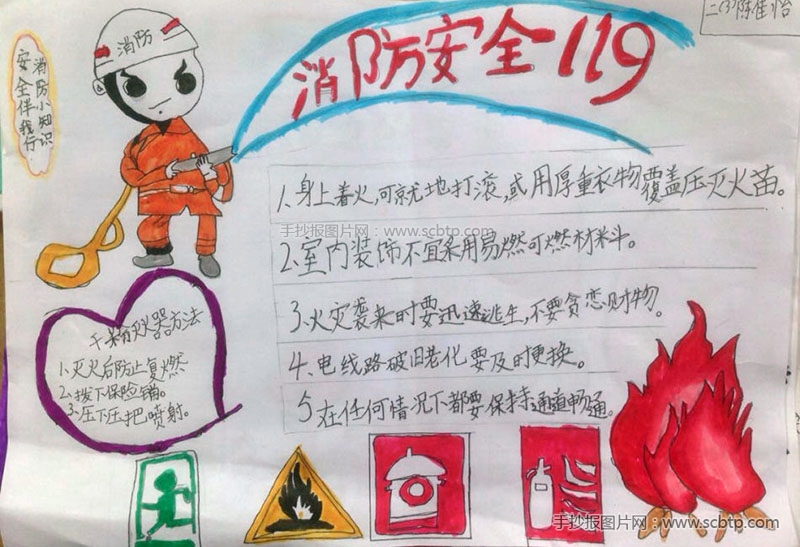 二(3)陈佳怡
消防安全119
消防
消防小知识
安全伴我行
1、身上着火,可就地打滚,或用厚重衣物覆盖压灭火苗。
手抄报图片网：www.scbtp.com
2、室内装饰不宜采用易燃可燃材料。
3、火灾袭来时要迅速逃生,不要贪恋财物。
4、电线路破旧老化要及时更换。
5在任何情况下都要保持通道畅通。
灭火器方法
1、灭火后防止复燃
2、拨下保险销。
3、压下压把喷射。
手抄报图片网：www.scbtp.com